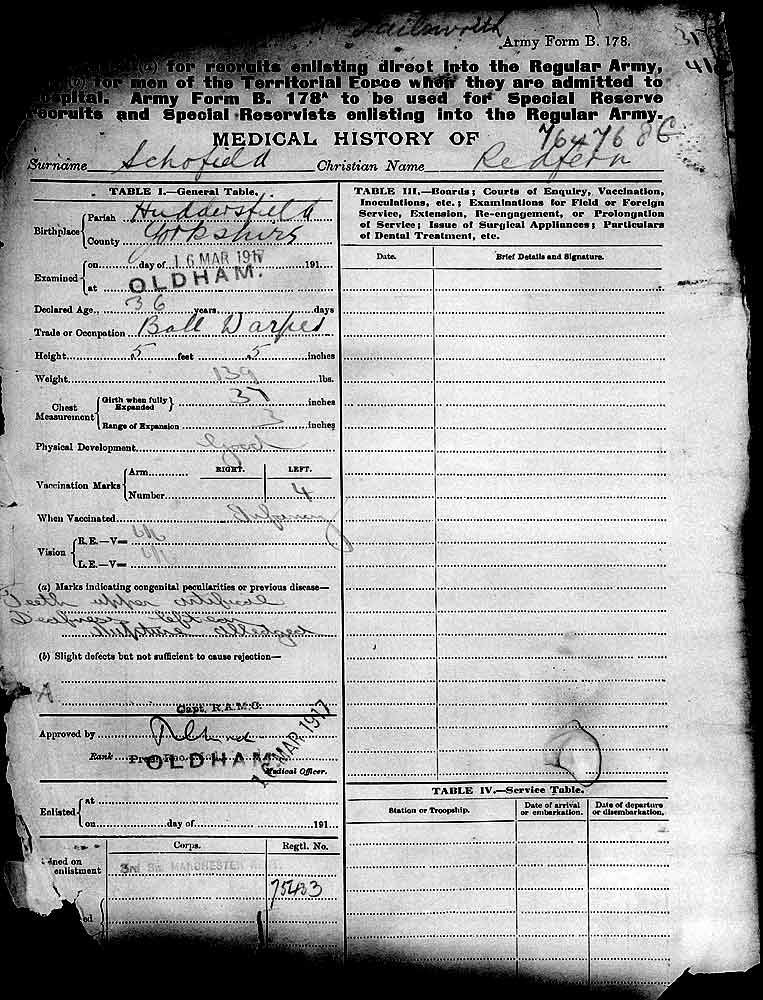 Failsworth
Army Form B. 178.
(a) for recruits enlisting direct into the Regular Army,
for men of the Territorial Force when they are admitted to
Hospital. Army Form B. 178A to be used for Special Reserve
recruits and Special Reservists enlisting into the Regular Army.
MEDICAL HISTORY OF
Surname Schofield Christian Name Redfern
TABLE I.—General Table.
Birthplace Parish Huddersfield
County Yorkshire
Examined on day of 16 MAR 1917 191
at OLDHAM.
Declared Age 36 years days
Trade or Occupation Ball Warper
Height 5 feet 5 inches
Weight 139 lbs.
Chest Measurement Girth when fully Expanded 37 inches
Range of Expansion 3 inches
Physical Development Good
Vaccination Marks Arm RIGHT. LEFT.
Number 4
When Vaccinated Infancy
Vision R.E.—V=
L.E.—V=
(a) Marks indicating congenital peculiarities or previous disease—
Teeth upper artificial
Deafness left ear
Rupture alledged
(b) Slight defects but not sufficient to cause rejection—
A
Capt. R.A.M.C.
Approved by
Rank OLDHAM 16 MAR 1917
Medical Officer.
Enlisted at
on day of 191
Corps. Regtl. No.
Joined on enlistment 3rd MANCHESTER
75433
TABLE III.—Boards; Courts of Enquiry, Vaccination,
Inoculations, etc.; Examinations for Field or Foreign
Service, Extension, Re-engagement, or Prolongation
of Service; Issue of Surgical Appliances; Particulars
of Dental Treatment, etc.
Date. Brief Details and Signature.
TABLE IV.—Service Table.
Station or Troopship. Date of arrival or embarkation. Date of departure or disembarkation.